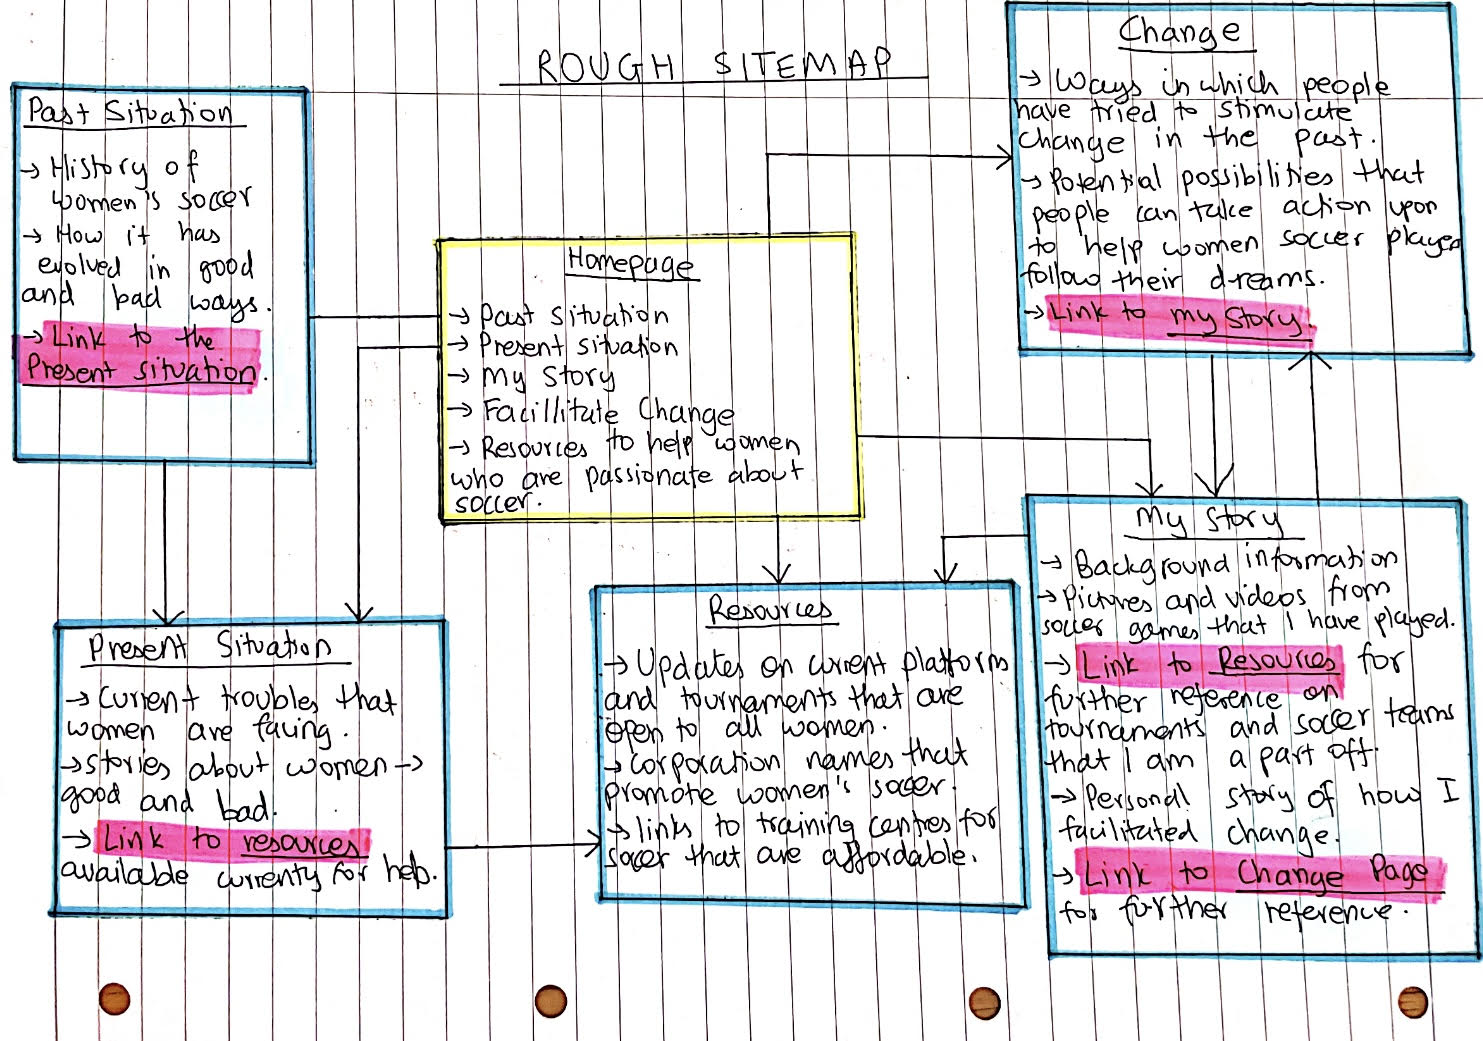 ROUGH SITEMAP
Past Situation
→ History of
women's soccer
→ How it has
evolved in good
and bad ways.
→ Link to the
Present situation.
Homepage
→ Past situation
→ Present situation
→ My Story
→ Facillitate Change
→ Resources to help women
who are passionate about
soccer.
Change
→ Ways in which people
have tried to stimulate
change in the past.
→ Potential possibilities that
people can take action upon
to help women soccer player
follow their dreams.
→ Link to my story.
Present Situation
→ Current troubles that
women are facing.
→ stories about women →
good and bad.
→ Link to resources
available currenty for help.
Resources
→ Updates on current platform
and tournaments that are
open to all women.
→ Corporation names that
promote women's soccer.
→ links to training centres for
soccer that are affordable.
My Story
→ Background information
→ Pictures and videos from
soccer games that I have played.
→ Link to Resources for
further reference on
tournaments and soccer teams
that I am a part off.
→ Personal story of how I
facilitated change.
→ Link to Change Page
for further reference.